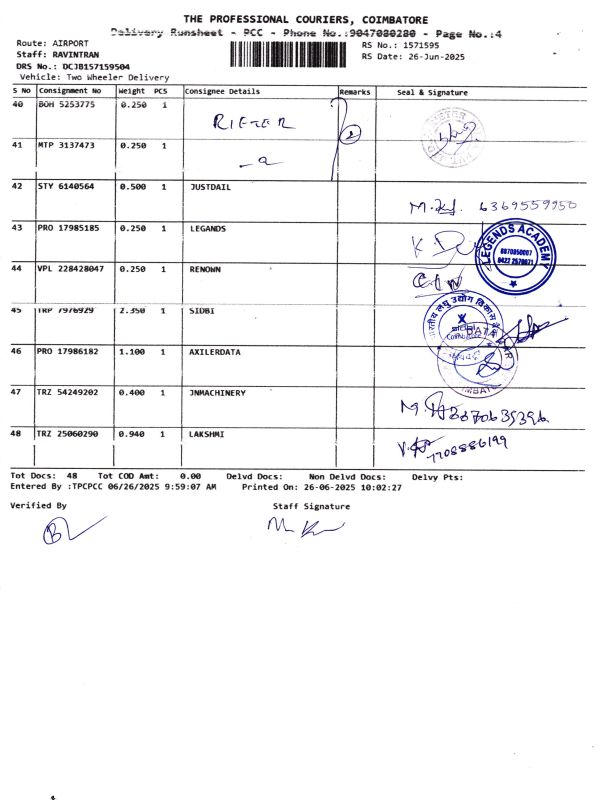 THE PROFESSIONAL COURIERS, COIMBATORE
Delivery Runsheet - PCC - Phone No.:9047080280 - Page No.:4
Route: AIRPORT
RS No.: 1571595
Staff: RAVINTRAN
RS Date: 26-Jun-2025
DRS No.: DCJB157159504
Vehicle: Two Wheeler Delivery
S No Consignment No Weight PCS Consignee Details Remarks Seal & Signature
40 BOH 5253775 0.250 1 RIETER 2
41 MTP 3137473 0.250 1
42 STY 6140564 0.500 1 JUSTDAIL
6369559950
43 PRO 17985185 0.250 1 LEGANDS
LEGENDS ACADEMY
44 VPL 228428047 0.250 1 RENOWN
45 TRP 7976929 2.350 1 SIDBI
भारतीय लघु उद्योग विकास
46 PRO 17986182 1.100 1 AXILERDATA
47 TRZ 54249202 0.400 1 JNMACHINERY
48 TRZ 25060290 0.940 1 LAKSHMI
7708886199
Tot Docs: 48 Tot COD Amt: 0.00 Delvd Docs: Non Delvd Docs: Delvy Pts:
Entered By :TPCPCC 06/26/2025 9:59:07 AM Printed On: 26-06-2025 10:02:27
Verified By Staff Signature